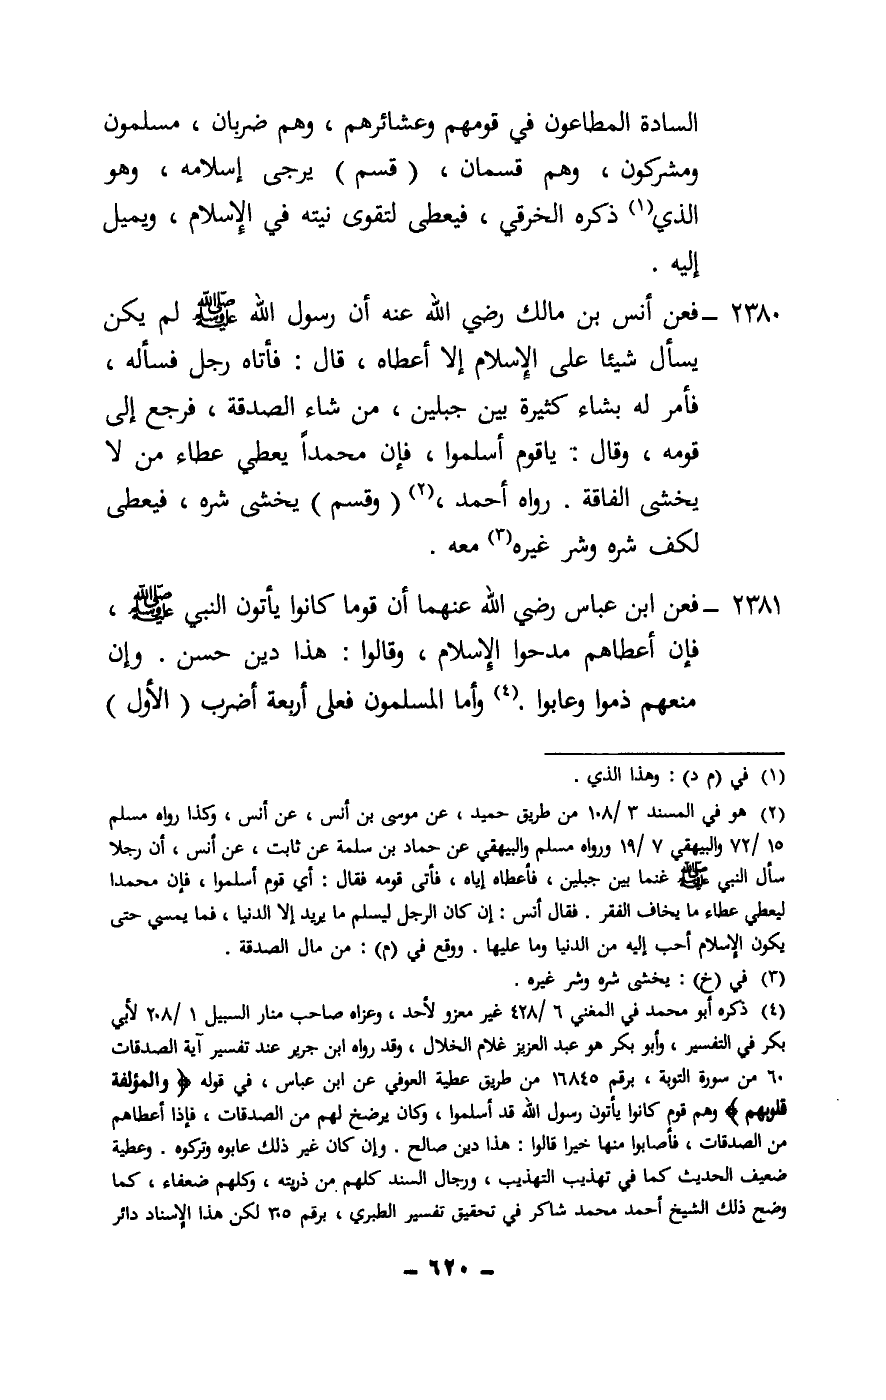 السادة المطاعون في قومهم وعشائرهم ، وهم ضربان ، مسلمون
ومشركون ، وهم قسمان ، ( قسم ) يرجى إسلامه ، وهو
الذي(١) ذكره الخرقي ، فيعطى لتقوى نيته في الإسلام ، ويميل
إليه .
٢٣٨٠ – فعن أنس بن مالك رضي الله عنه أن رسول الله ﷺ لم يكن
يسأل شيئا على الإسلام إلا أعطاه ، قال : فأتاه رجل فسأله ،
فأمر له بشاء كثيرة بين جبلين ، من شاء الصدقة ، فرجع إلى
قومه ، وقال : ياقوم أسلموا ، فإن محمداً يعطي عطاء من لا
يخشى الفاقة . رواه أحمد ،(٢) ( وقسم ) يخشى شره ، فيعطى
لكف شره وشر غيره(٣) معه .
٢٣٨١ – فعن ابن عباس رضي الله عنهما أن قوما كانوا يأتون النبي ﷺ ،
فإن أعطاهم مدحوا الإسلام ، وقالوا : هذا دين حسن . وإن
منعهم ذموا وعابوا .(٤) وأما المسلمون فعلى أربعة أضرب ( الأول )
(١) في (م د) : وهذا الذي .
(٢) هو في المسند ٣ /١٠٨ من طريق حميد ، عن موسى بن أنس ، عن أنس ، وكذا رواه مسلم
١٥ /٧٢ والبيهقي ٧ /١٩ ورواه مسلم والبيهقي عن حماد بن سلمة عن ثابت ، عن أنس ، أن رجلا
سأل النبي ﷺ غنما بين جبلين ، فأعطاه إياه ، فأتى قومه فقال : أي قوم أسلموا ، فإن محمدا
ليعطي عطاء ما يخاف الفقر . فقال أنس : إن كان الرجل ليسلم ما يريد إلا الدنيا ، فما يمسي حتى
يكون الإسلام أحب إليه من الدنيا وما عليها . ووقع في (م) : من مال الصدقة .
(٣) في (خ) : يخشى شره وشر غيره .
(٤) ذكره أبو محمد في المغني ٦ /٤٢٨ غير معزو لأحد ، وعزاه صاحب منار السبيل ١ /٢٠٨ لأبي
بكر في التفسير ، وأبو بكر هو عبد العزيز غلام الخلال ، وقد رواه ابن جرير عند تفسير آية الصدقات
٦٠ من سورة التوبة ، برقم ١٦٨٤٥ من طريق عطية العوفي عن ابن عباس ، في قوله ﴿ والمؤلفة
قلوبهم ﴾ وهم قوم كانوا يأتون رسول الله قد أسلموا ، وكان يرضخ لهم من الصدقات ، فإذا أعطاهم
من الصدقات ، فأصابوا منها خيرا قالوا : هذا دين صالح . وإن كان غير ذلك عابوه وتركوه . وعطية
ضعيف الحديث كما في تهذيب التهذيب ، ورجال السند كلهم من ذريته ، وكلهم ضعفاء ، كما
وضح ذلك الشيخ أحمد محمد شاكر في تحقيق تفسير الطبري ، برقم ٣٠٥ لكن هذا الإسناد دائر
– ٦٢٠ –